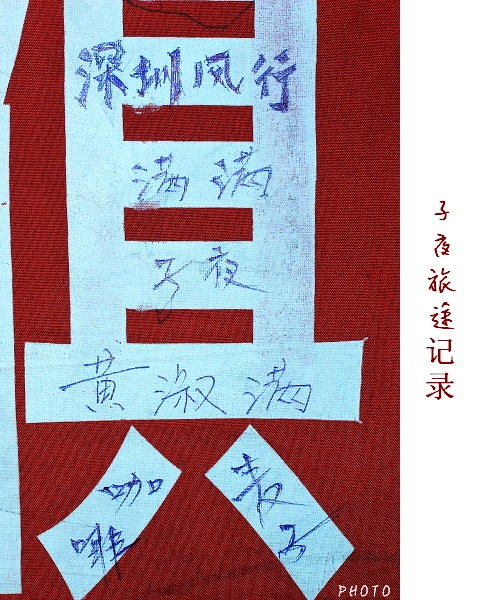 深圳风行
满满
子夜
黄淑满
咖啡
麦子
子夜旅途记录
PHOTO